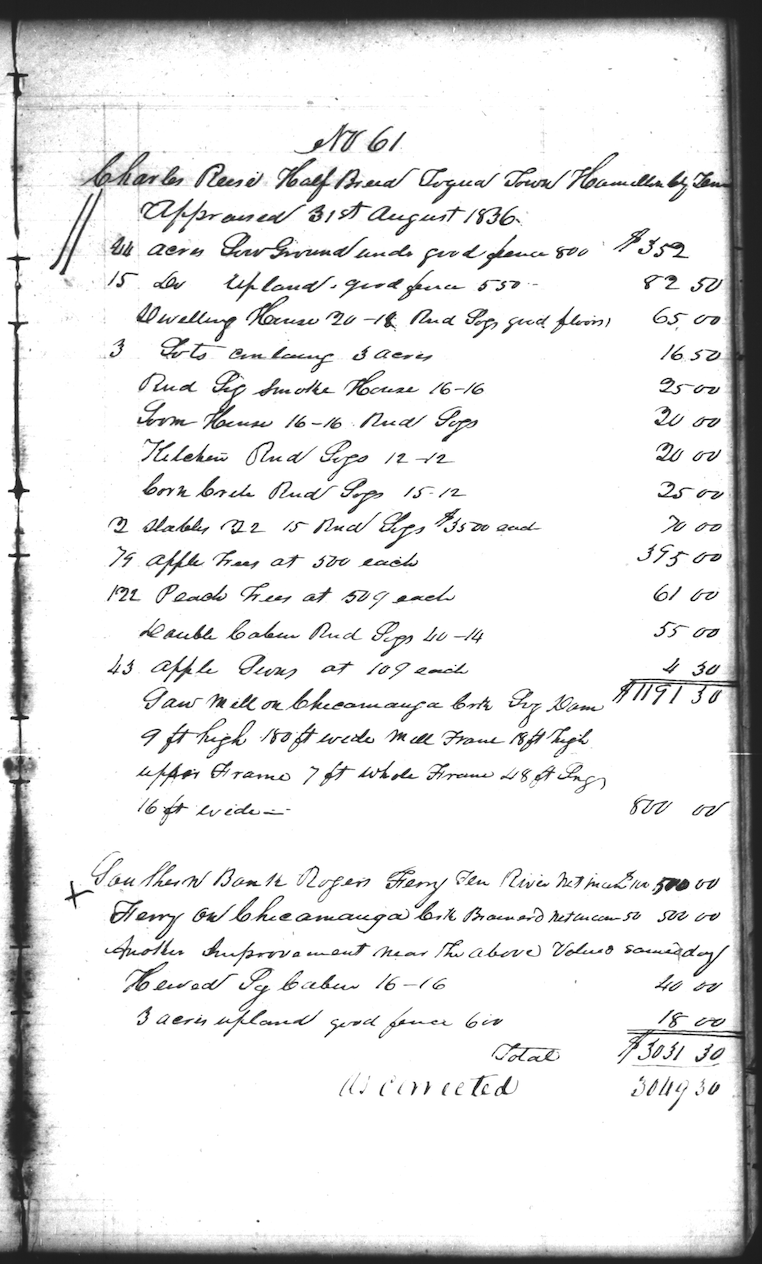 No 61
Charles Reese Half Breed Toqua Town Hamilton Cty Tenn
Appraised 31st August 1836
44 acres Low Ground under good fence 800 $352
15 Do Upland good fence 550 82 50
Dwelling House 20-18 Rnd Logs good floors 65 00
3 Lots containg 3 acres 16 50
Rnd Log Smoke House 16-16 25 00
Loom House 16-16 Rnd Logs 20 00
Kitchen Rnd Logs 12-12 20 00
Corn Crib Rnd Logs 15-12 25 00
2 Stables 22 15 Rnd Logs $3500 each 70 00
79 apple Trees at 500 each 395 00
122 Peach Trees at 50¢ each 61 00
Double Cabin Rnd Logs 40-14 55 00
43 apple at 10¢ each 4 30
Saw Mill on Chicamauga Crk Log Dam $1191 30
9 ft high 180 ft wide Mill Frame 18 ft high
upper Frame 7 ft whole Frame 48 ft Long
16 ft wide — 800 00
x Southern Bank Rogers Ferry Ten River Net 500 00
Ferry on Chicamauga Crk Brainerd Net incom 50 500 00
Another Improvement near the above Valued same day
Hewed Lg Cabin 16-16 40 00
3 acres upland good fence 600 18 00
Total $3031 30
As corrected 3049 30